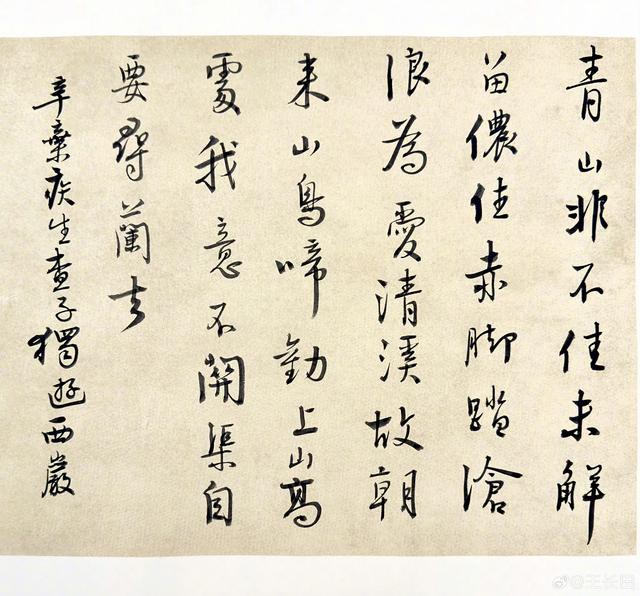 青山非不佳未解
留儂住赤脚踏滄
浪為愛清溪故朝
来山鳥啼勸上山高
處我意不關渠自
要尋蘭去
辛棄疾生查子獨遊西巖